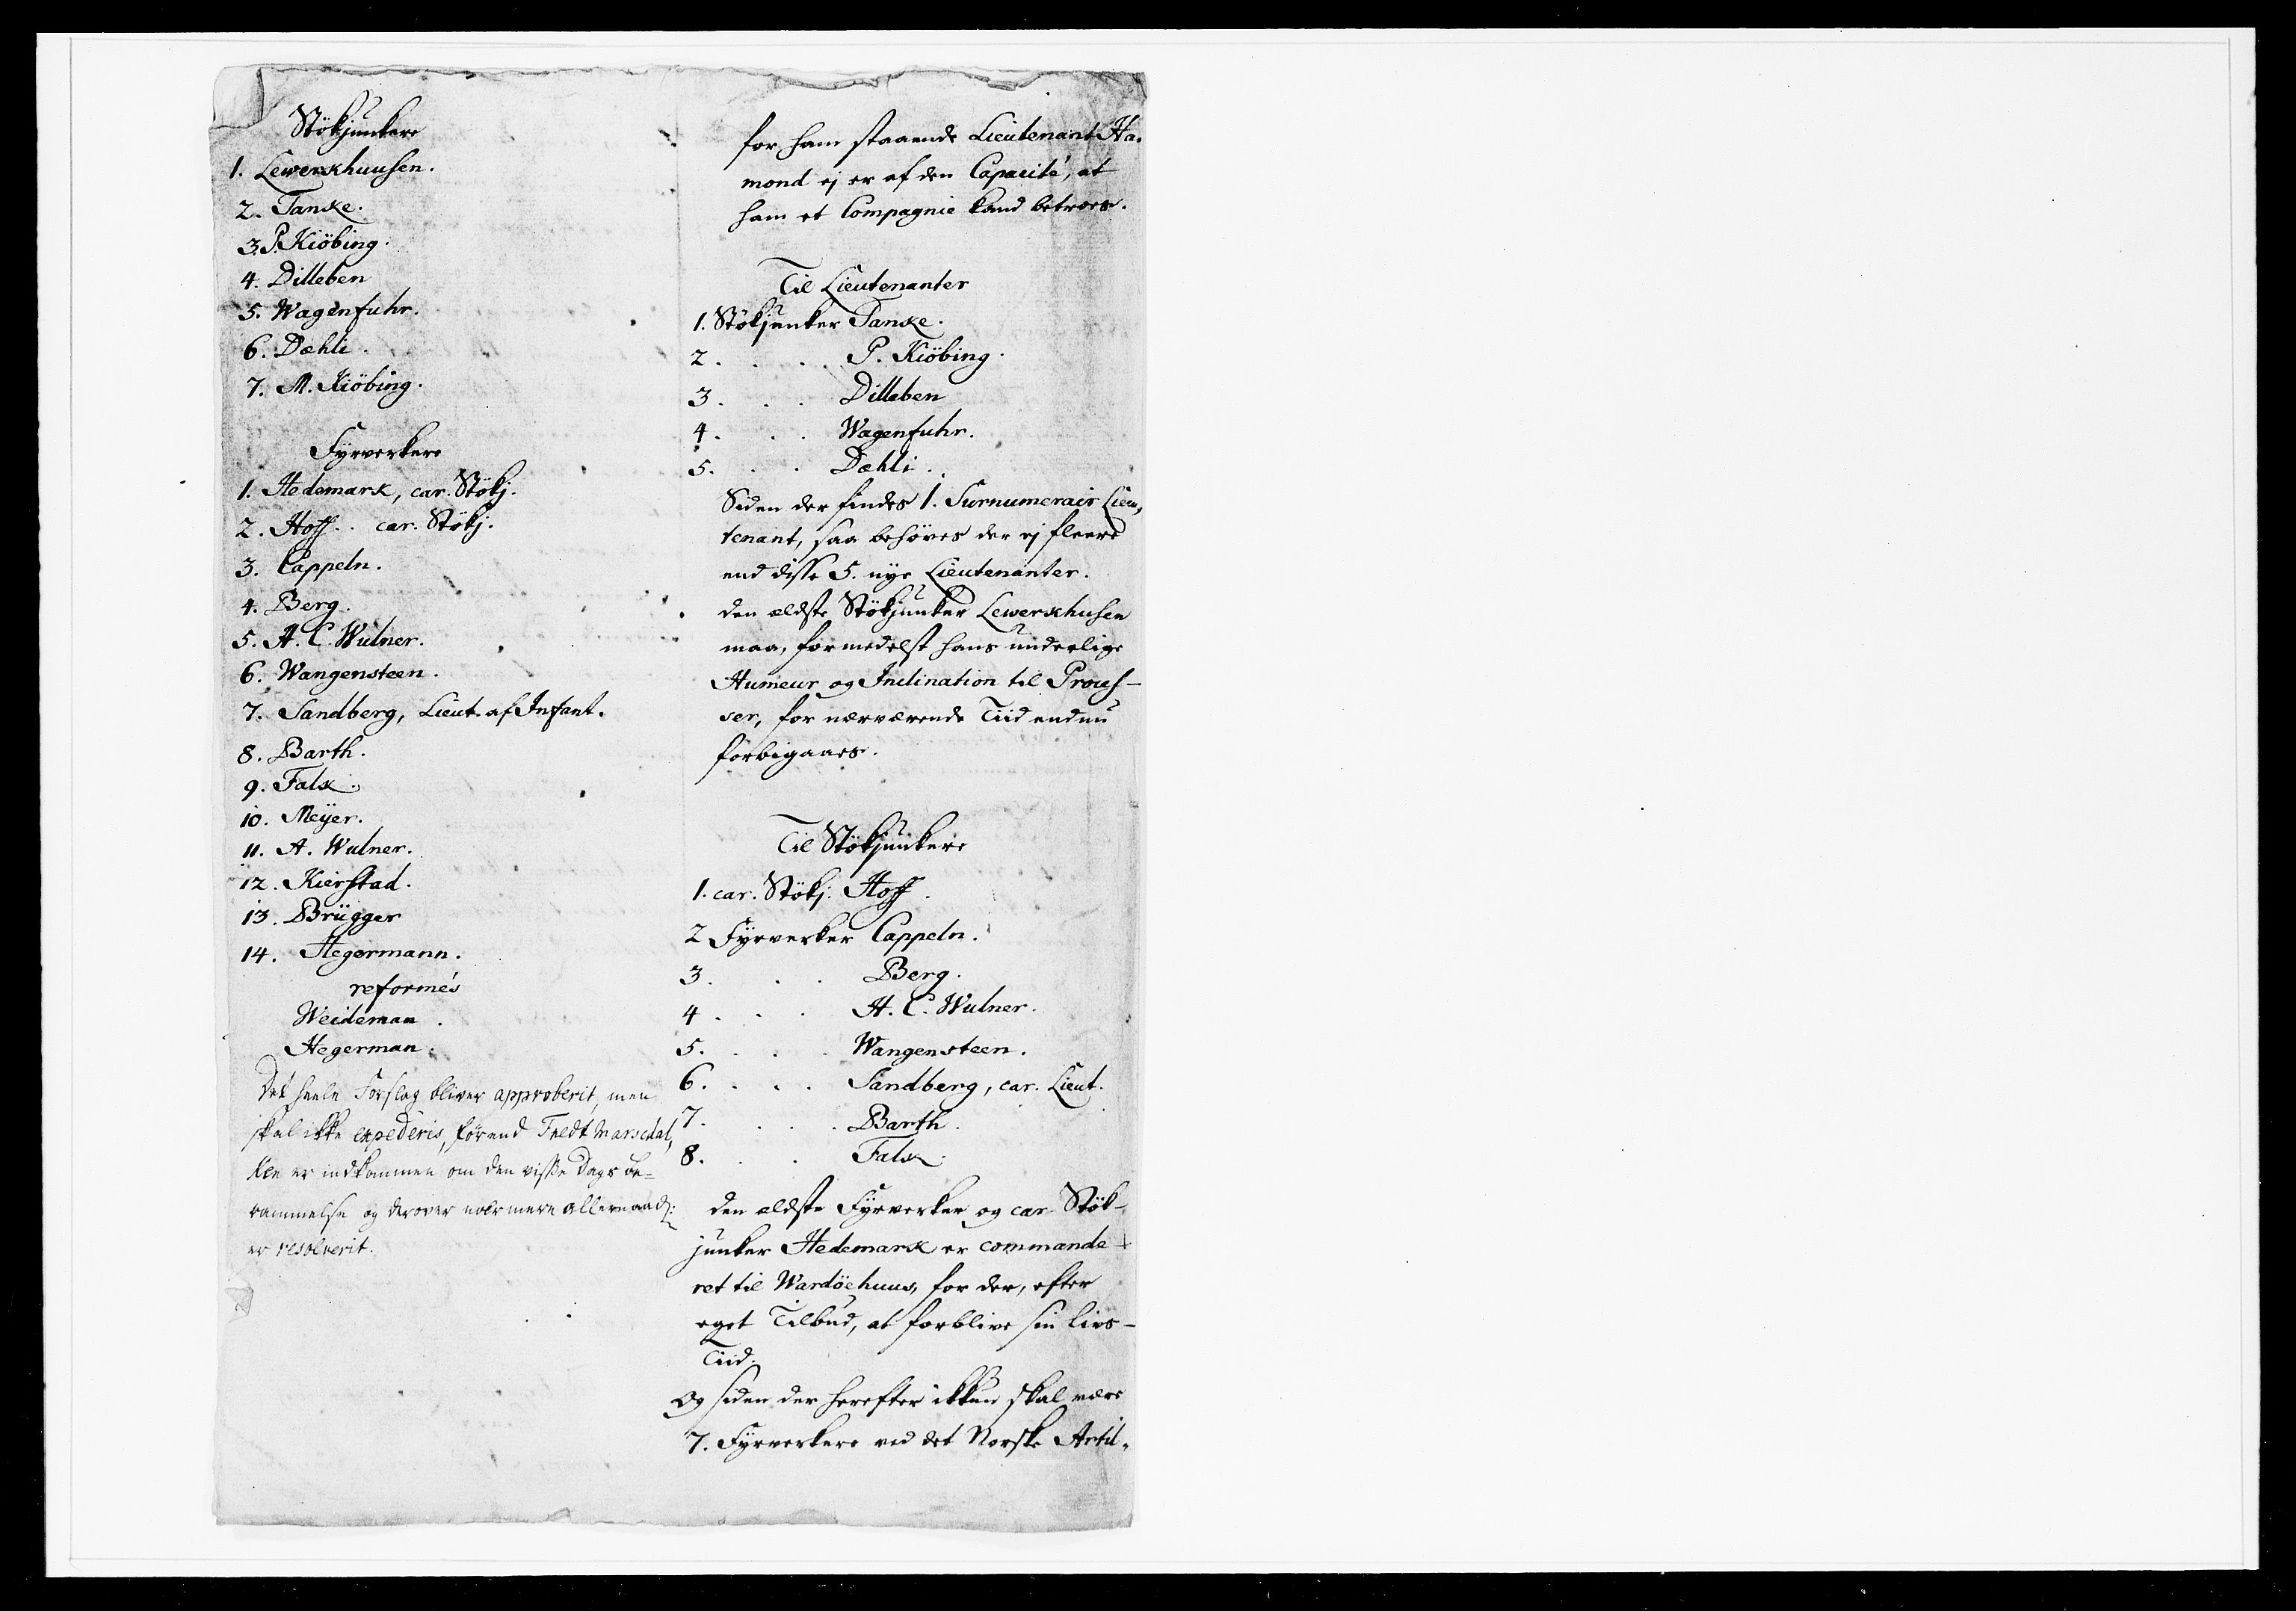 Stökjunkere
1. Lewerkhuusen.
2. Tanke.
3. P. Kiöbing.
4. Dilleben
5. Wagenfuhr.
6. Dæhli.
7. M. Kiöbing.
Fyrverkere
1. Hedemark, car. Stökj.
2. Hoff. . car. Stökj.
3. Cappeln.
4. Berg.
5. A. C. Wulner.
6. Wangensteen.
7. Sandberg, Lieut. af Infant.
8. Barth.
9. Falk.
10. Meÿer.
11. A. Wulner.
12. Kierstad.
13. Brügger
14. Hegermann.
reformés
Weideman.
Hegerman.
Det heele Forslag bliver approberit, men
skal ikke expederis, förend Feldt Marschal,
ken er indkommen om den visse Dags be=
rammelse og derover nærmere allernaad:
er resolverit.
for ham staaende Lieutenant Ha-
mond ej er af den Capacité, at
ham et Compagnie kand betroes.
Til Lieutenanter
1. Stökjunker Tanke.
2. . . . P. Kiöbing.
3. . . Dilleben
4. . . Wagenfuhr.
5. . . Dæhli.
Siden der findes 1. Surnumerair Lieu,
tenant, saa behöves der ej fleere
end disse 5. nye Lieutenanter.
den ældste Stökjunker Lewerkhusen
maa, formedelst hans underlige
Humeur og Inclination til Proces-
ser, for nærværende Tiid endnu
forbigaaes.
Til Stökjunkere
1. car. Stökj. Hoff.
2 Fyrverker Cappeln.
3. . . Berg.
4 . . . A. C. Wulner.
5. . . . Wangensteen.
6. . . . Sandberg, car. Lieut.
7. . . . Barth.
8. . . Falk.
den ældste Fyrverker og car. Stök-
junker Hedemark er commande-
ret til Wardöehuus, for der, efter
eget Tilbud, at forblive sin Livs-
Tiid.
Og siden der herefter ikkun skal være
7. Fyrverkere ved det Norske Artil-